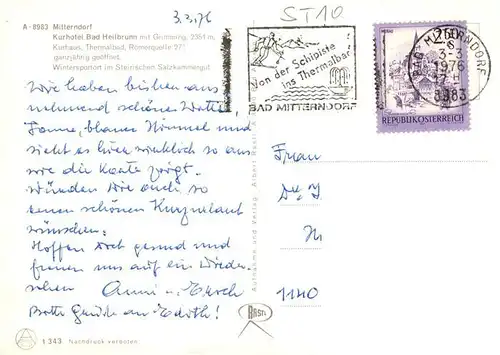 3.3.76
ST10
A - 8983 Mitterndorf
Kurhotel Bad Heilbrunn mit Grimming, 2351 m,
Kurhaus, Thermalbad, Römerquelle 27°
ganzjährig geöffnet,
Wintersportort im Steirischen Salzkammergut
Von der Schipiste
ins Thermalbad
BAD MITTERNDORF
BAD MITTERNDORF
3.-3.
1976
8983
REPUBLIK ÖSTERREICH
Wir haben bisher aus
nehmend schönes Wetter,
Sonne, blauer Himmel und
sieht es hier wirklich so aus
wie die Karte zeigt.
Würden Dir auch so
einen schönen Kurzurlaub
wünschen.
Hoffen Dich gesund und
freuen uns auf ein Wieder-
sehen Anni u.
Bitte Grüße an Edith!
Frau
1140
Aufnahme und Verlag: Albert
BASTL
1 343 Nachdruck verboten